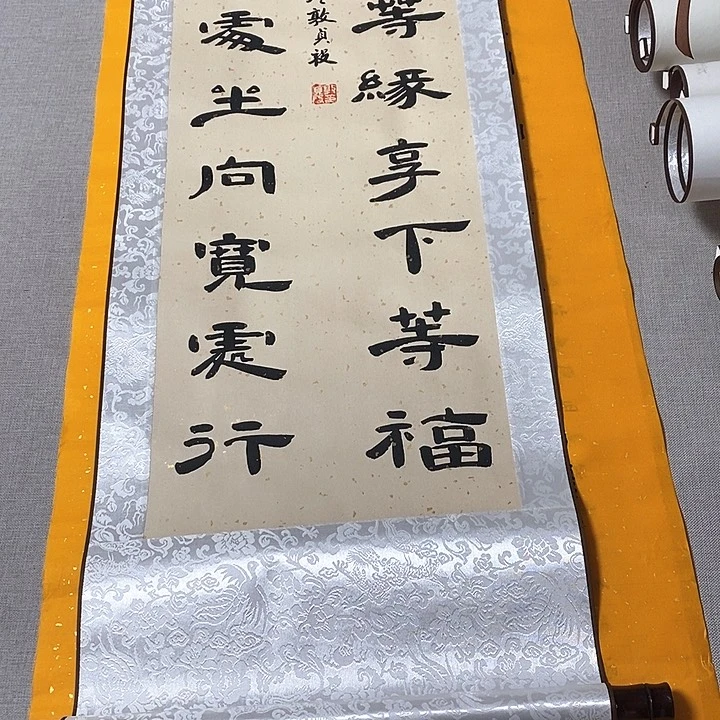 等緣享下等福
處坐向寬處行
敦貞祓